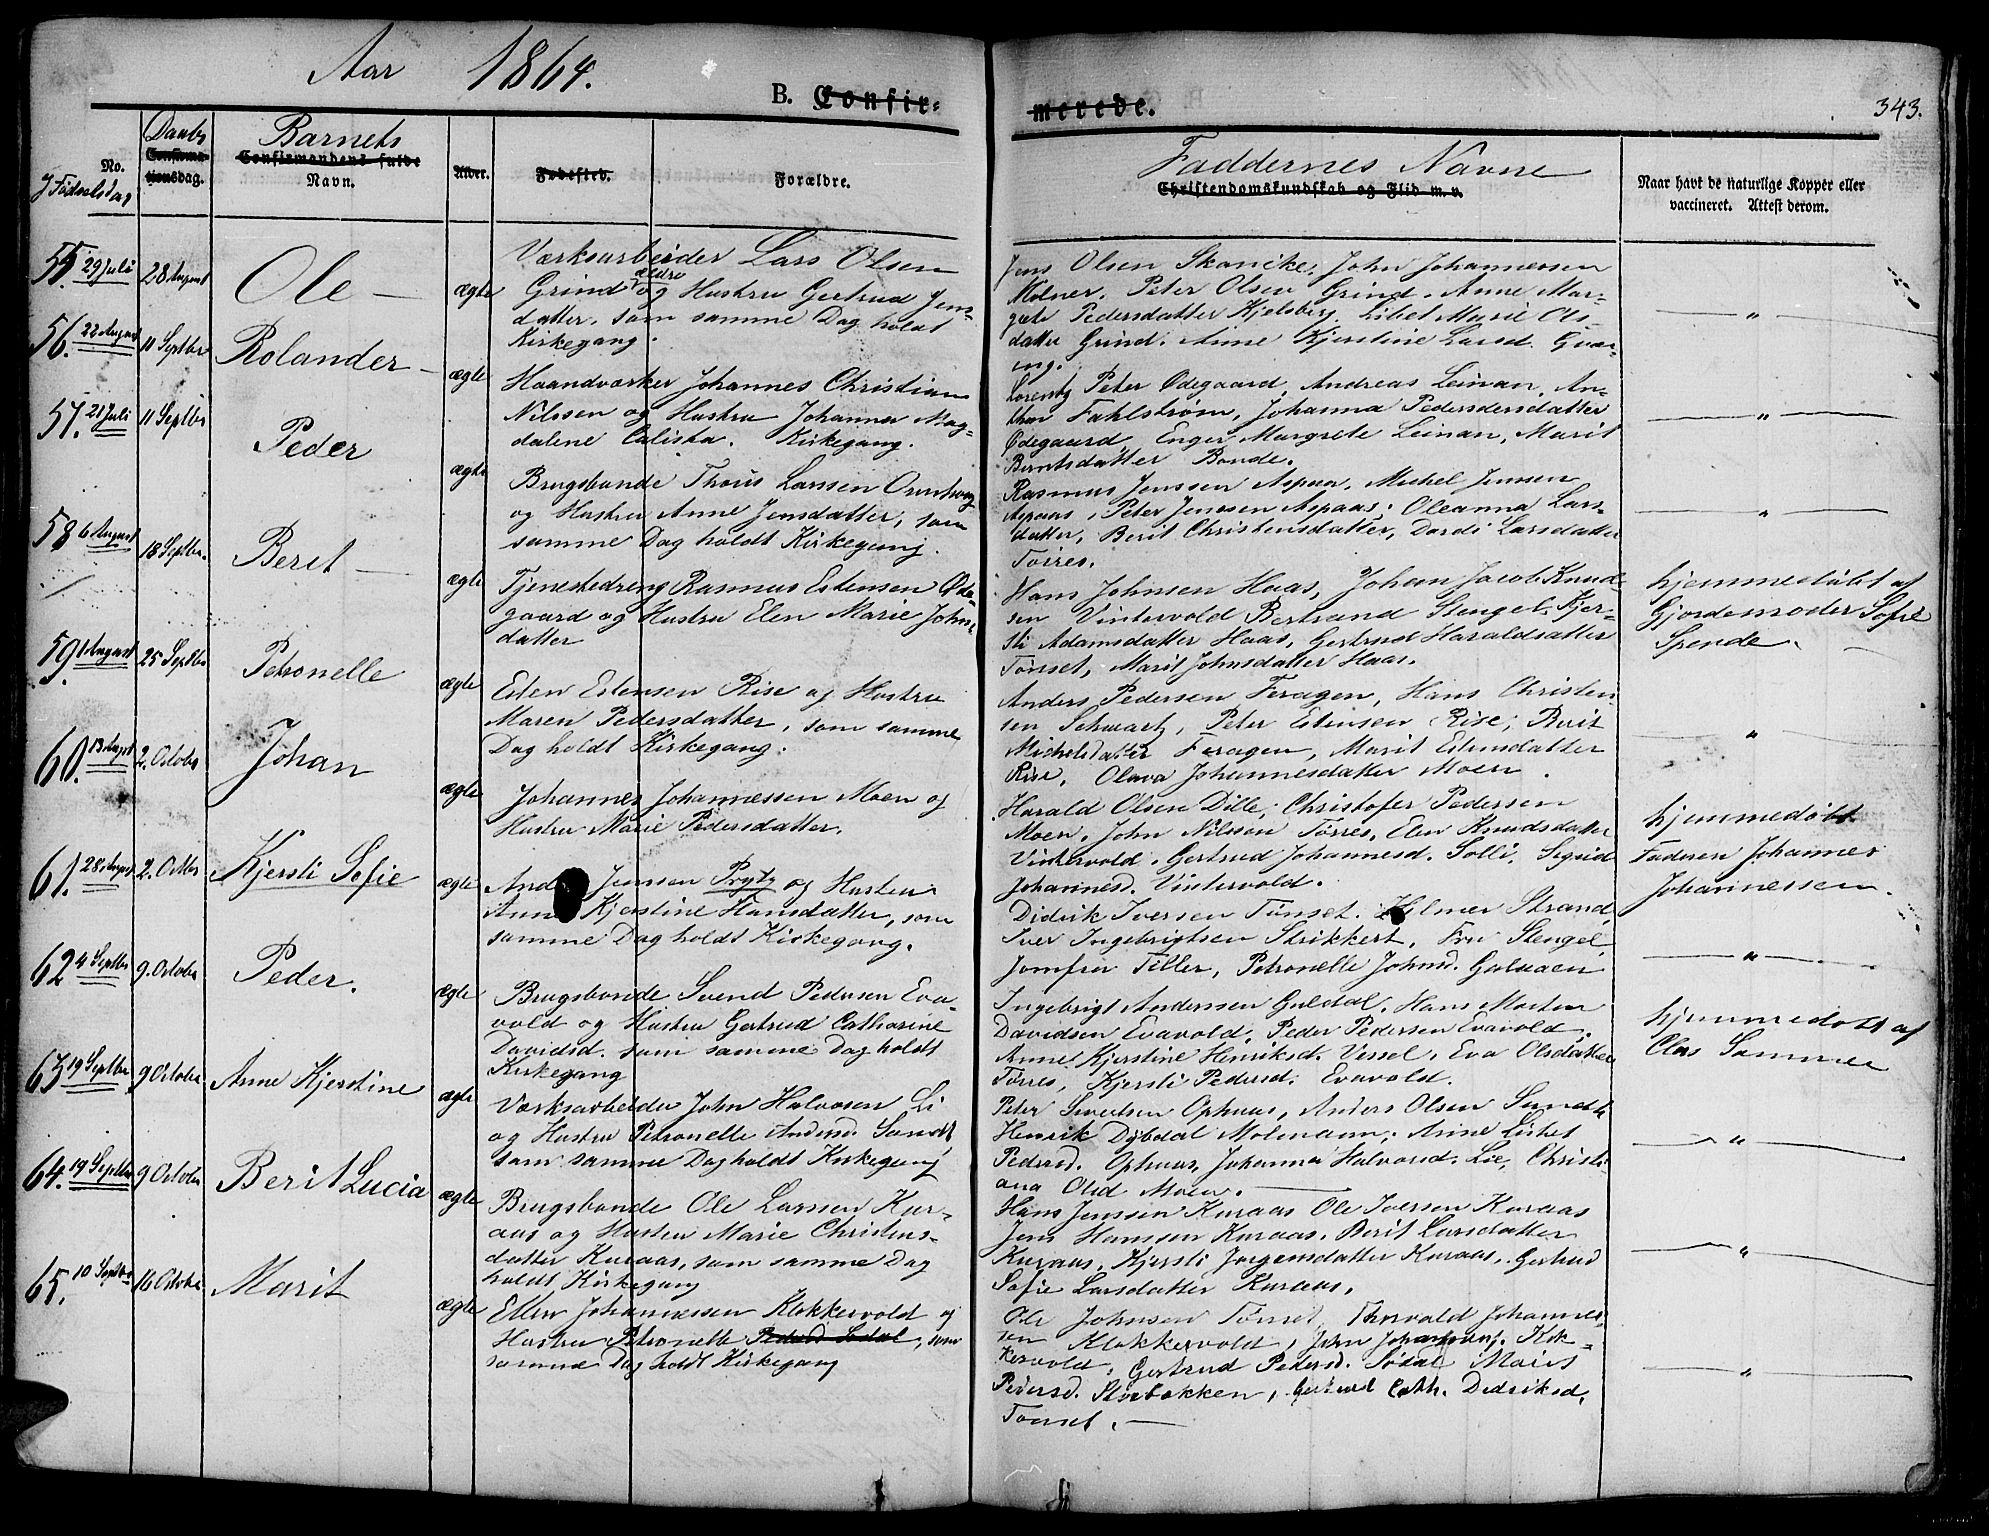 Aar 1864.
B. Confir-
merede.
343.
No.
Fødselsdag
Daabs
Confirma-
tionsdag.
Barnets
Confirmandens fulde
Navn.
Alder.
Fødested.
Forældre.
Faddernes Navne
Christendomskundskab og Flid m. v.
Naar havt de naturlige Kopper eller
vaccineret. Attest derom.
55. 29 Juli
28 August
Ole
ægte
Værksarbeider Lars Olsen
Grind ældre og Hustru Gertrud Jens-
datter, som samme Dag holdt
Kirkegang.
Jens Olsen Skancke, John Johannessen
Molner. Peter Olsen Grind. Anne Mar-
grete Pedersdatter Kjelsberg. Lisbet Marie Ols-
datter Grind. Anne Kjerstine Larsd.
"
56. 22 August
11 Septbr
Rolander
ægte
Haandværker Johannes Christian
Nilssen og Hustru Johanna Mag-
dalene Calista. Kirkegang.
Lorentz Peter Ødegaard, Andreas Leinan, An-
thon Fahlstrøm, Johanna Pedersdersdatter
Ødegaard, Enger Margrete Leinan, Marit
Berntsdatter Bonde.
"
57. 21 Juli
11 Septbr
Peder
ægte
Brugsbonde Thøris Larsen
og Hustru Anne Jensdatter, som
samme Dag holdt Kirkegang.
Rasmus Jenssen Aspaas, Michel Jensen
Aspaas, Peter Jenssen Aspaas; Oleanna Lars-
datter, Berit Christensdatter, Dordi Larsdatter
Torres.
"
58 6 August
18 Septbr.
Beret
ægte
Tjenestedreng Rasmus Estensen Øde-
gaard og Hustru Elen Marie Johns-
datter
Hans Johnsen Haas, Johan Jacob Knud-
sen Vintervold Bertrand Stengel. Kjer-
sti Adamsdatter Haas, Gertrud Haraldsdatter
Tønset, Marit Johnsdatter Haas.
hjemmedøbt af
Gjordemoder Sofie
Spende.
59. 1 August
25 Septbr
Petronelle
ægte
Esten Estensen Rise og Hustru
Maren Pedersdatter, som samme
Dag holdt Kirkegang.
Anders Pedersen Feragen, Hans Christen-
sen Schwartz, Peter Estensen Rise; Berit
Michelsdatter Feragen, Marit Estensdatter
Rise, Olava Johannesdatter Moen.
"
60. 13 August
2. Octobr
Johan
ægte
Johannes Johannessen Moen og
Hustru Marie Pedersdatter.
Harald Olsen Dille, Christofer Pedersen
Moen. John Nilsson Torres, Elen Knudsdatter
Vintervold. Gertrud Johannesd. Solli, Sigrid
Johannesd. Vintervold.
hjemmedøbt
Faderen Johannes
Johannessen.
61. 28 August
2. Octbr
Kjersti Sofie
ægte
Jensen Prytz og Hustru
Kjerstine Hansdatter, som
samme Dag holdt Kirkegang.
Didrik Iversen Tønset. Hilmer Strand,
Iver Ingebrigtsen Strikkert, Fru Stengel,
Jomfru Tiller, Petronelle Johnsd. Galaaen
"
62 4 Septbr
9. Octobr
Peder.
ægte
Brugsbonde Svend Pedersen Eva-
vold og Hustru Gertrud Catharine
Davidsd. som samme Dag holdt
Kirkegang
Ingebrigt Andersen Guldal. Hans Morten
Davidsen Evavold. Peder Pedersen Evavold.
Anne Kjerstine Henriksd. Vessel. Eva Olsdatter
Torres, Kjersti Pedersd. Evavold.
hjemmedøbt af
Clas Sommer
63 19 Septbr
9 Octobr
Anne Kjerstine
ægte
Værksarbeider John Halvorsen Li
og Hustru Petronelle Andersd. Sundt
som samme Dag holdt Kirkegang
Peter Sivertsen Ophuus, Anders Olsen Sundt
Henrik Dybdal Molmann; Anne Lisbet
Pedersd. Ophuus, Johanna Halvorsd. Lie, Christi-
ana Olsd Moen.
"
64. 19 Septbr
9 Octobr
Berit Lucia
ægte
Brugsbonde Ole Larssen Kur-
aas og Hustru Marie Christens-
datter Kuraas, som samme Dag
holdt Kirkegang
Hans Jenssen Kuraas Ole Iversen Kuraas
Jens Hansen Kuraas. Berit Larsdatter
Kuraas, Kjersti Jørgensdatter Kuraas. Gertrud
Sofie Larsdatter Kuraas.
"
65. 10 Septbr
16 Octobr
Marit
ægte
Ellev Johannessen Klokkervold og
Hustru Petronelle Pedersd Sødal, som
samme Dag holdt Kirkegang
Ole Johnsen Tønset, Thorvald Johannes-
sen Klokkervold, John Johannesg. Klok-
kervold. Gertrud Pedersd. Sødal Marit
Pedersd. Storbækken, Gertrud Cath. Dedriksd,
Tønset.
"